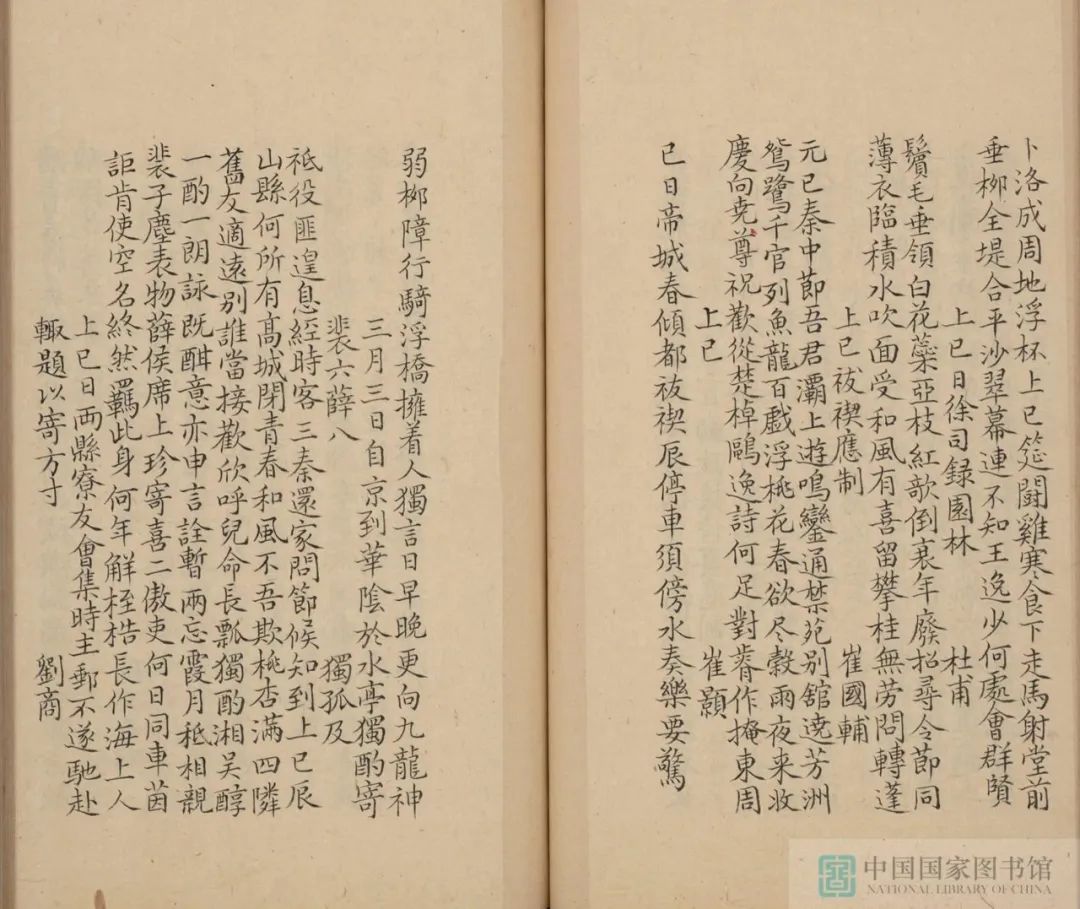 卜洛成周地浮杯上巳筵闘雞寒食下走馬射堂前
垂柳全堤合平沙翠幕連不知王逸少何處會群賢
上巳日徐司録園林 杜甫
鬢毛垂領白花蘂亞枝紅歌倒衰年廢招尋令節同
薄衣臨積水吹面受和風有喜留攀桂無勞問轉蓬
上巳祓禊應制 崔國輔
元巳秦中節吾君灞上遊鳴鑾通禁苑別舘遶芳洲
鴛鷺千官列魚龍百戲浮桃花春欲尽穀雨夜来收
慶向尭尊祝歡從楚棹鷗逸詩何足對蓉作掩東周
上巳 崔顥
巳日帝城春傾都祓禊辰停車須傍水奏樂要驚
弱柳障行騎浮橋擁着人獨言日早晚更向九龍神
三月三日自京到華陰於水亭獨酌寄
裴六薛八 獨孤及
祗役匪遑息經時客三秦還家問節候知到上巳辰
山縣何所有高城閉青春和風不吾欺桃杏滿四隣
舊友適遠别誰當接歡欣呼兒命長瓢獨酌湘吴醇
一酌一朗詠既酣意亦申言詮暫兩忘霞月秪相親
裴子塵表物薛侯席上珍寄喜二傲吏何日同車茵
詎肯使空名終然羈此身何年解桎梏長作海上人
上巳日两縣寮友會集時主郵不遂馳赴
輙題以寄方寸 劉商
中国国家图书馆
NATIONAL LIBRARY OF CHINA